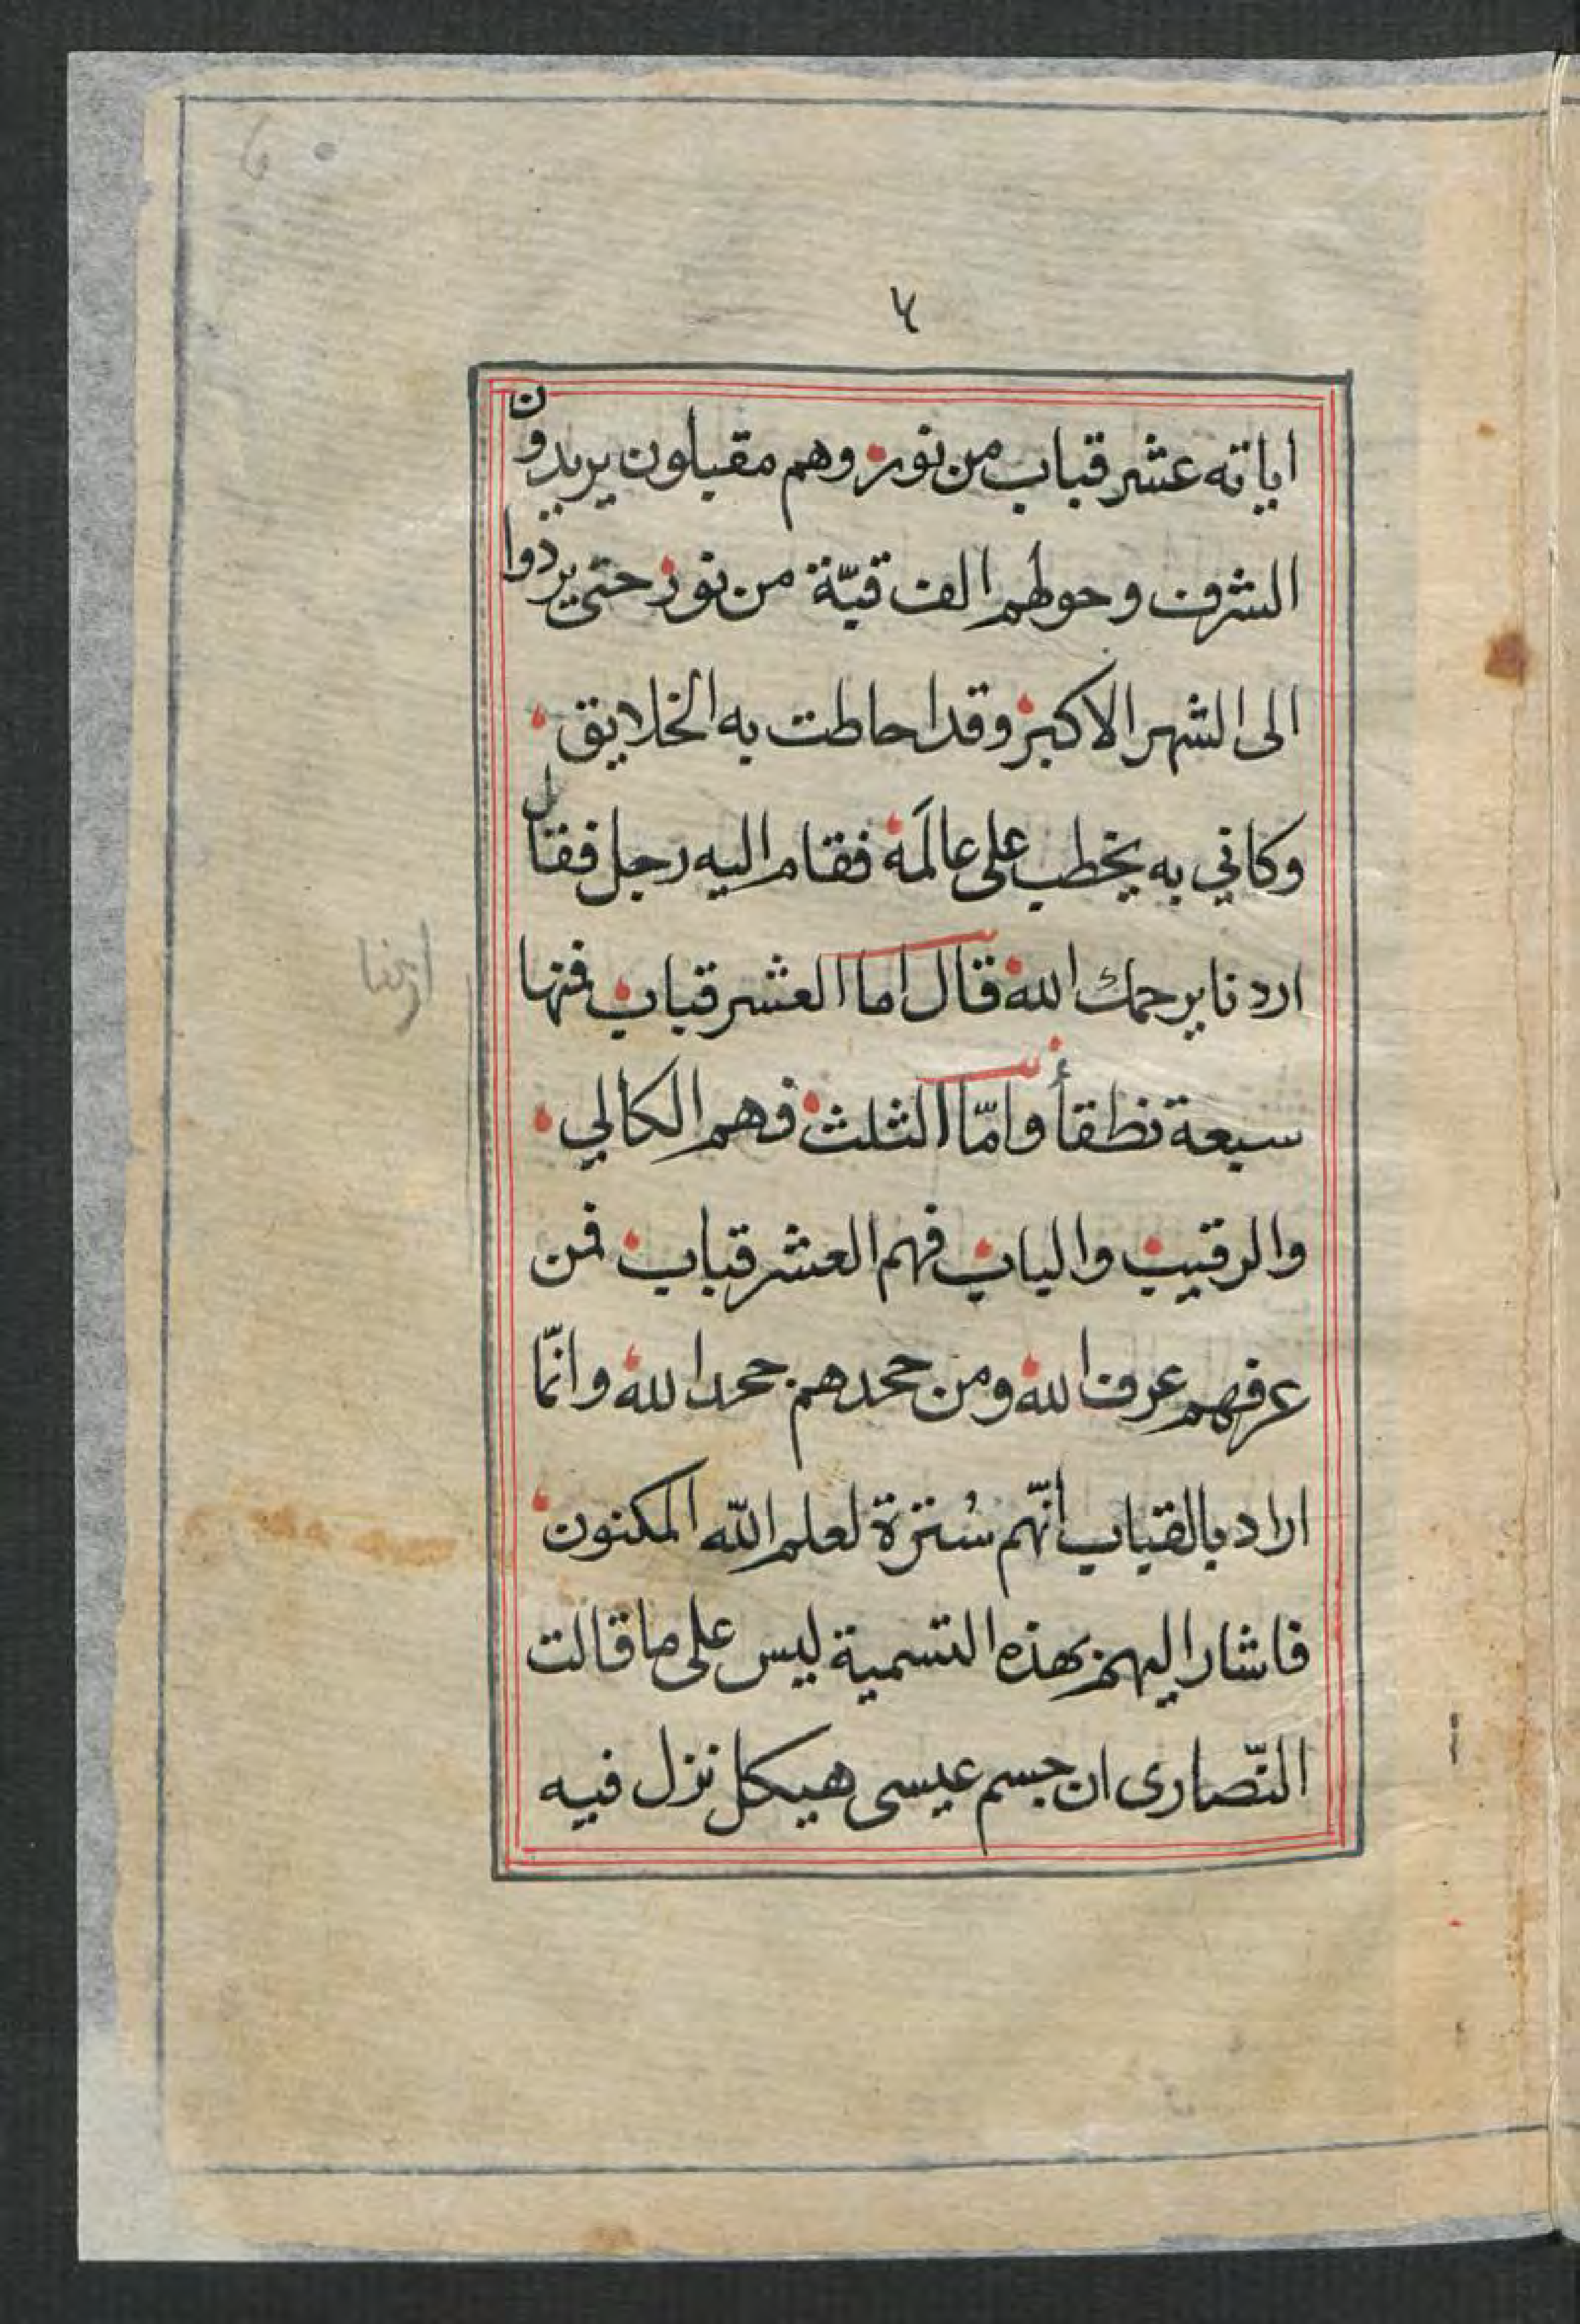 ٦
اياته عشر قباب من نور وهم مقبلون يريدون
الشرف وحولهم الف قبّة من نور حتى يردوا
الى الشهر الاكبر وقد احاطت به الخلايق
وكاني به يخطب على عالَمه فقام اليه رجل فقال
اردنا يرحمك الله قال اما العشر قباب فمنها
سبعة نطقأ وامّا الثلث فهم الكالي
والرقيب والباب فهم العشر قباب فمن
عرفهم عرف الله ومن جحدهم جحد الله وانّما
اراد بالقباب انّهم سُترة لعلم اللّه المكنون
فاشار اليهم بهذه التسمية ليس على ما قالت
النّصارى ان جسم عيسى هيكل نزل فيه